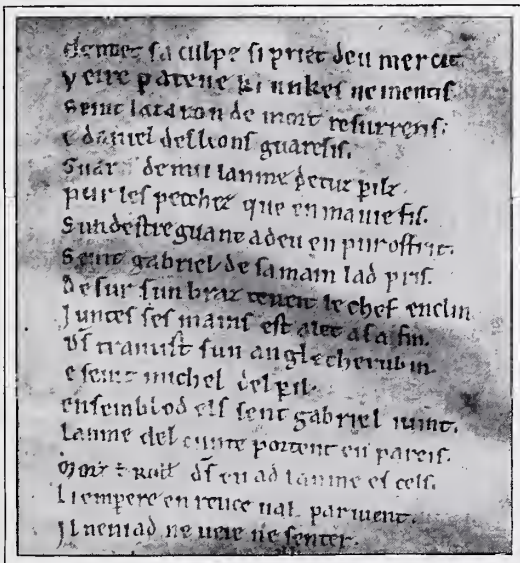 cleimet sa culpe si priet deu mercit
veire patene ki unkes ne mentis
seint lataron de mort resurrexis.
e daniel des lions guaresis.
Guaris de mei lanme de tuz perilz
pur les pecchez que en ma vie fis.
Sun destre guant a deu en puroffrit.
Seint gabriel de sa main lad pris.
De sur sun braz teneit le chef enclin
Juntes ses mains est alet a sa fin.
ds tramist sun angle cherubin.
e seint michel del peril.
ensembl od els sent gabriel i vint.
lanme del cunte portent en pareis.
Morz est Roll ds en ad lanme es cels.
li empere en rencesvals parvient.
Il nen i ad ne veie ne senter.